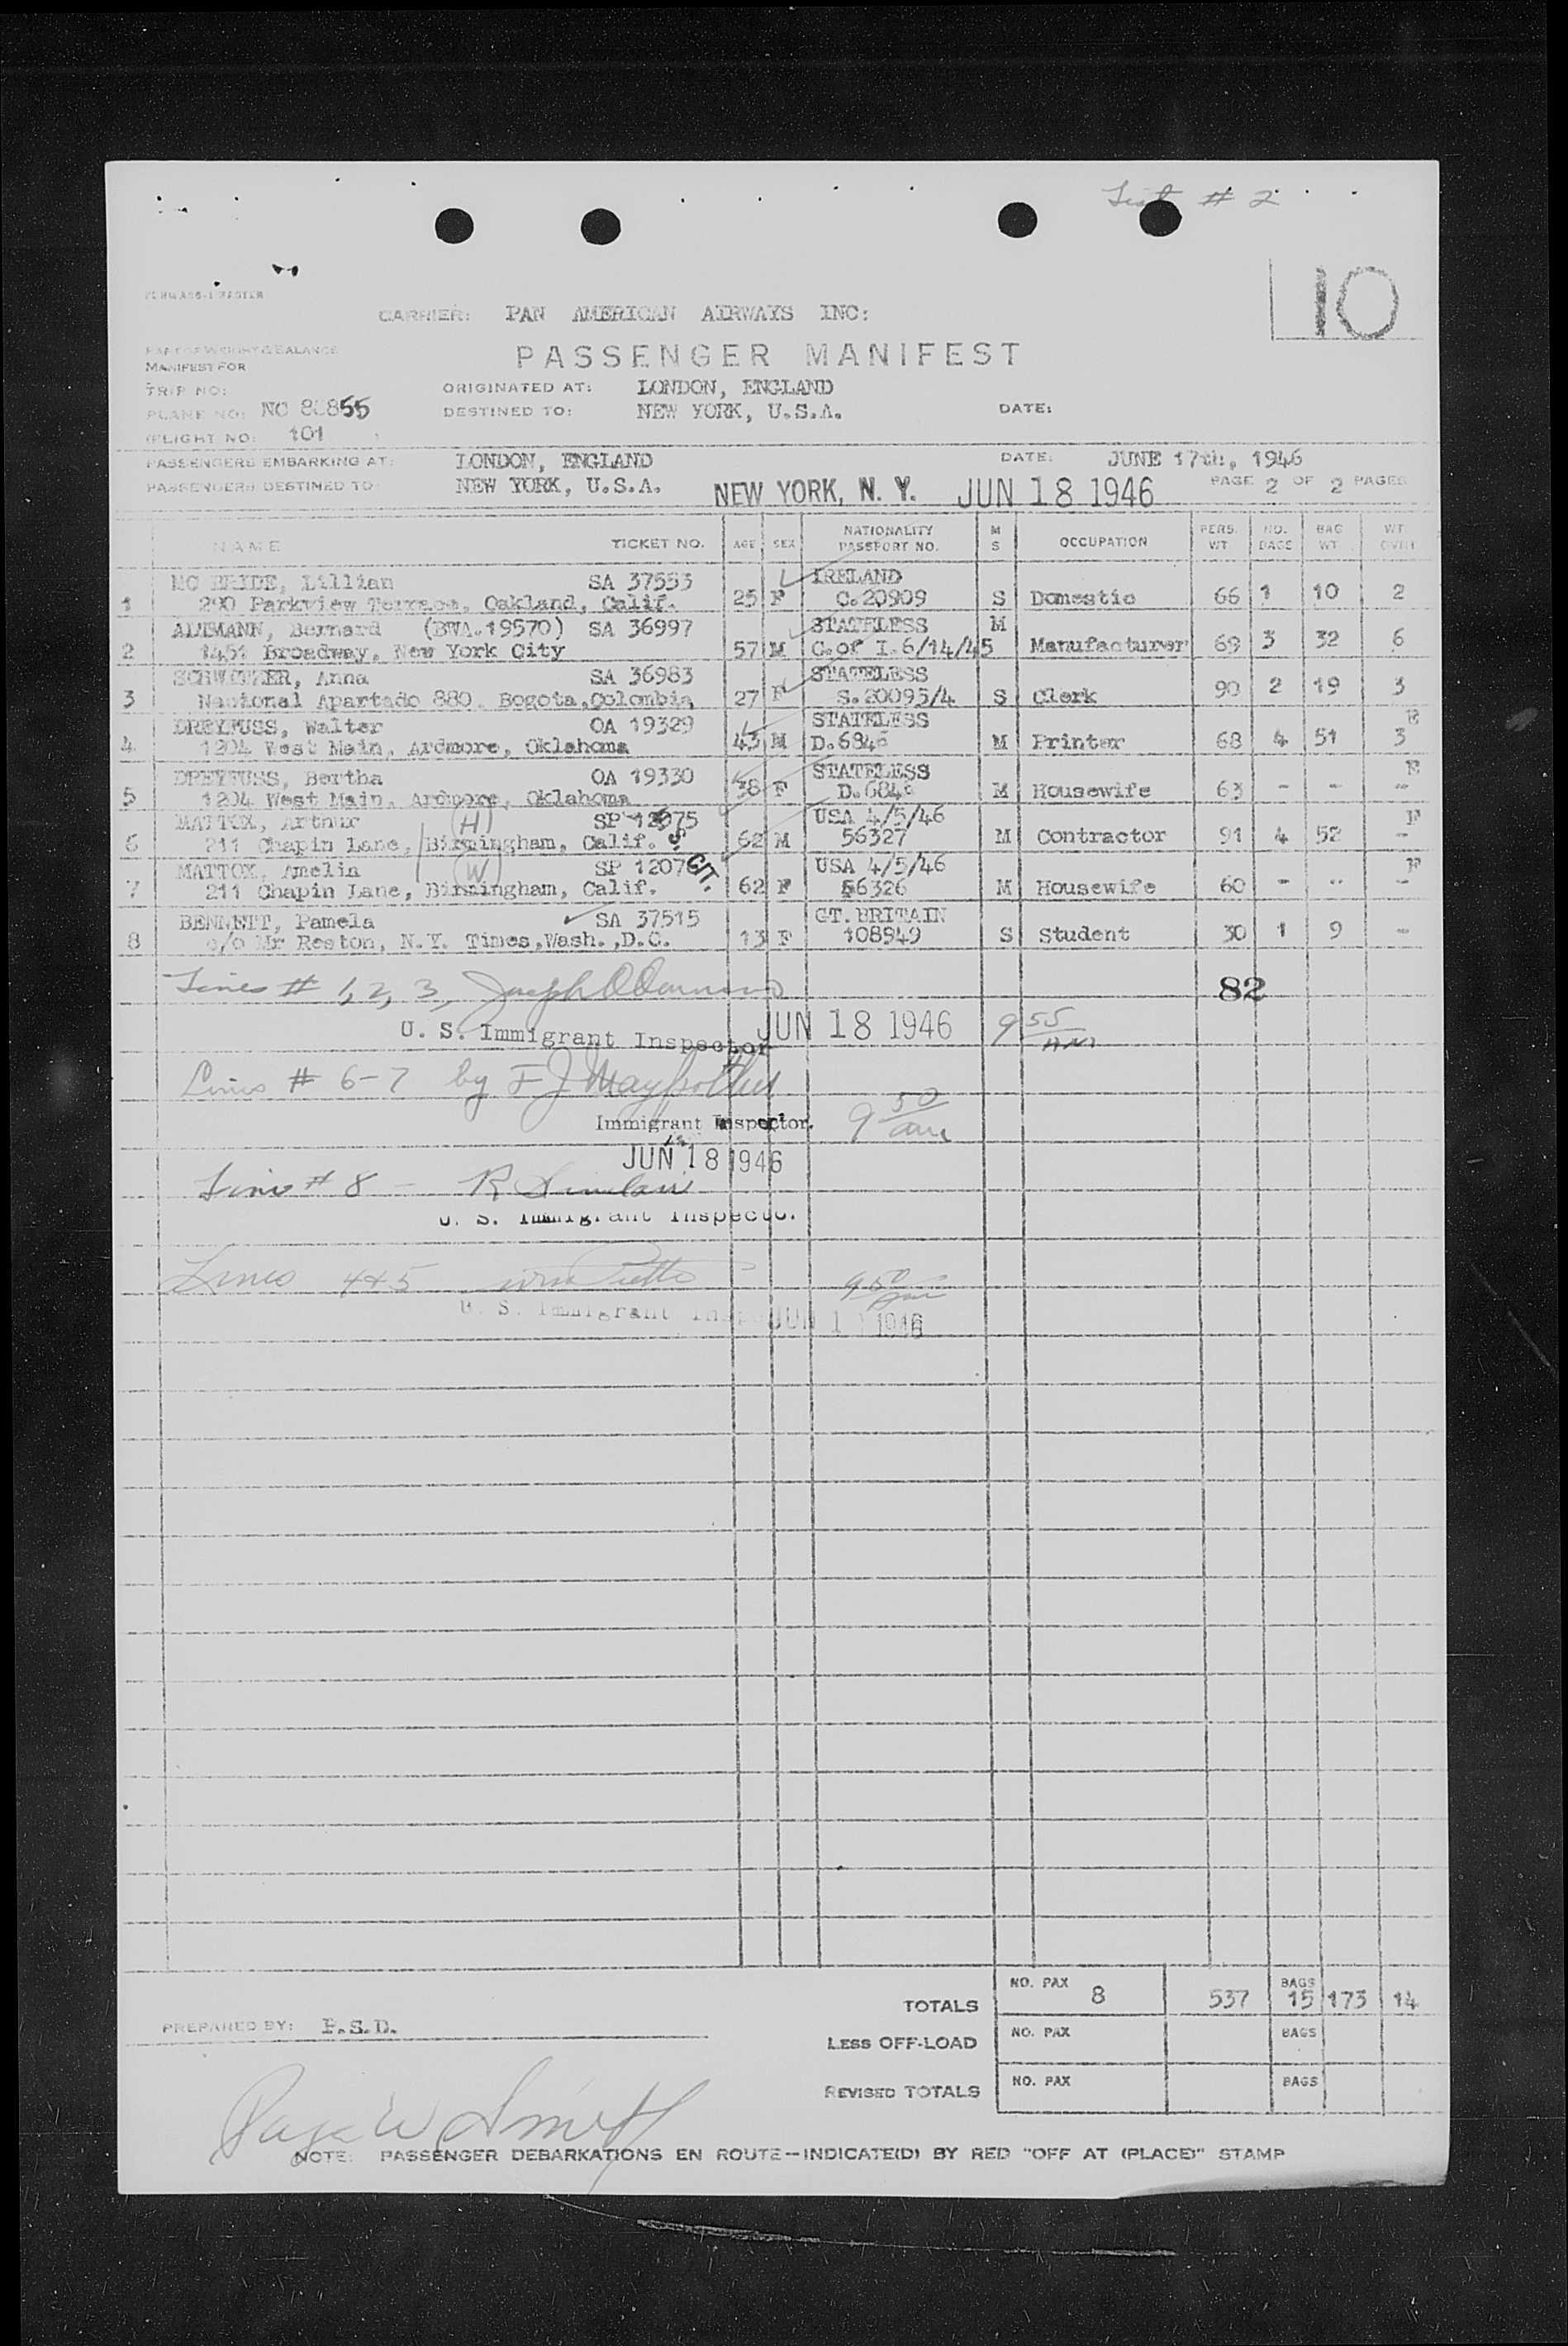 List # 2
10
CARRIER: PAN AMERICAN AIRWAYS INC:
PASSENGER MANIFEST
PART OF WEIGHT & BALANCE
MANIFEST FOR
TRIP NO:
ORIGINATED AT: LONDON, ENGLAND
PLANE NO: NC 88855
DESTINED TO: NEW YORK, U.S.A. DATE:
FLIGHT NO: 101
PASSENGERS EMBARKING AT: LONDON, ENGLAND DATE: JUNE 17th, 1946
PASSENGERS DESTINED TO: NEW YORK, U.S.A. NEW YORK, N. Y. JUN 18 1946 PAGE 2 OF 2 PAGES
NAME TICKET NO. AGE SEX NATIONALITY PASSPORT NO. M S OCCUPATION PERS. WT NO. BAGS BAG WT WT OVER
MC BRIDE, Lillian SA 37553 IRELAND
1 290 Parkview Terrace, Oakland, Calif. 25 F C.20909 S Domestic 66 1 10 2
ALTMANN, Bernard (BWA.19570) SA 36997 STATELESS M
2 1451 Broadway, New York City 57 M C.of I.6/14/45 Manufacturer 69 3 32 6
SCHWITZER, Anna SA 36983 STATELESS
3 National Apartado 880. Bogota,Colombia 27 F S.20095/4 S Clerk 90 2 19 3
DREYFUSS, Walter OA 19329 STATELESS E
4 1204 West Main, Ardmore, Oklahoma 43 M D.6846 M Printer 68 4 51 3
DREYFUSS, Bertha OA 19330 STATELESS E
5 1204 West Main, Ardmore, Oklahoma 38 F M Housewife 63 - - -
MATTOX, Arthur (H) SP 12075 USA 4/5/46 F
6 211 Chapin Lane, Birmingham, Calif. 62 M 56327 M Contractor 91 4 52 -
MATTOX, Amelia (W) SP CIT. USA 4/5/46 F
7 211 Chapin Lane, Birmingham, Calif. 62 F 56326 M Housewife 60 - - -
BENNETT, Pamela SA 37515 GT.BRITAIN
8 c/o Mr Reston, N.Y. Times,Wash.,D.C. 13 F 108949 S Student 30 1 9 -
Lines # 1, 2, 3, 82
U. S. Immigrant Inspector JUN 18 1946 9 55 AM
Lines # 6-7 by F J
Immigrant Inspector. 9 50 am
JUN 18 1946
Line # 8 - R Sinclair
U. S. Immigrant Inspector.
Lines 4+5 9 50 am
U. S. Immigrant JUN 1 1946
TOTALS NO. PAX 8 537 BAGS 15 173 14
PREPARED BY: P.S.D.
LESS OFF-LOAD NO. PAX BAGS
REVISED TOTALS NO. PAX BAGS
NOTE: PASSENGER DEBARKATIONS EN ROUTE—INDICATE(D) BY RED "OFF AT (PLACE)" STAMP